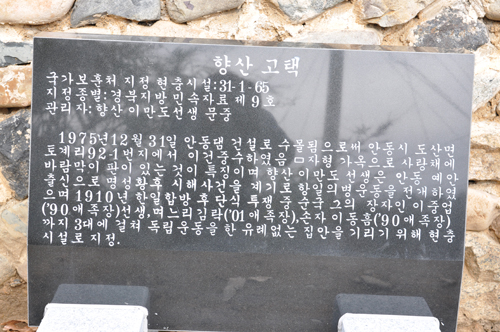 향산 고택
국가보훈처 지정 현충시설:31-1-65
지정종별:경북지방민속자료 제9호
관리자:향산 이만도선생 문중
1975년12월31일 안동댐 건설로 수몰됨으로써 안동시 도산면
토계리92-1번지에서 이건중수하였음 ㅁ자형 가옥으로 사랑채에
바람막이 판이 있는 것이 특징이며 향산 이만도 선생은 안동 예안
출신으로 명성황후 시해사건을 계기로 항일의병운동을 전개하였
으며 1910년 한일합방 후 단식 투쟁 중 순국 그의 장자인 이중업
('90애족장)선생,며느리김락('01애족장),손자이동흠('90애족장)
까지 3대에 걸쳐 독립운동을 한 유례없는 집안을 기리기 위해 현충
시설로 지정.